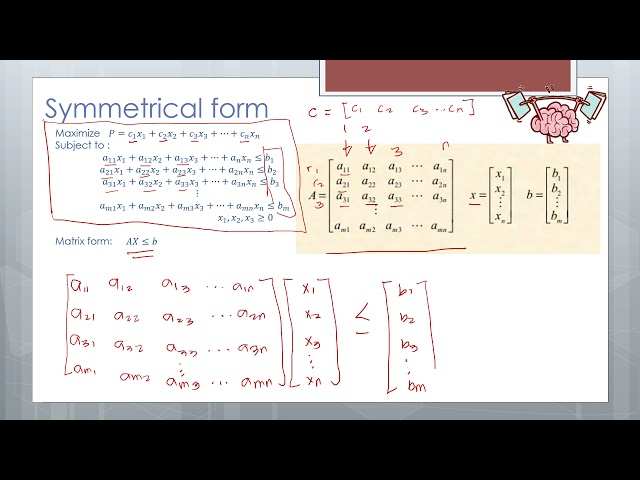 Symmetrical form
Maximize P = c₁x₁ + c₂x₂ + c₃x₃ + ⋯ + cₙxₙ
Subject to :
a₁₁x₁ + a₁₂x₂ + a₁₃x₃ + ⋯ + aₙxₙ ≤ b₁
a₂₁x₁ + a₂₂x₂ + a₂₃x₃ + ⋯ + a₂ₙxₙ ≤ b₂
a₃₁x₁ + a₃₂x₂ + a₃₃x₃ + ⋯ + a₃ₙxₙ ≤ b₃
⋮
aₘ₁x₁ + aₘ₂x₂ + aₘ₃x₃ + ⋯ + aₘₙxₙ ≤ bₘ
x₁, x₂, x₃ ≥ 0
Matrix form: AX ≤ b
C = [c₁ c₂ c₃ ⋯cₙ]
1 2 3 n
r₁ a₁₁ a₁₂ a₁₃ ⋯ a₁ₙ
r₂ a₂₁ a₂₂ a₂₃ ⋯ a₂ₙ
A = a₃₁ a₃₂ a₃₃ ⋯ a₃ₙ
3 ⋮
aₘ₁ aₘ₂ aₘ₃ ⋯ aₘₙ
x = x₁ x₂ ⋮ xₙ
b = b₁ b₂ ⋮ bₘ
a₁₁ a₁₂ a₁₃ ⋯ a₁ₙ x₁ b₁
a₂₁ a₂₂ a₂₃ ⋯ a₂ₙ x₂ ≤ b₂
a₃₁ a₃₂ a₃₃ ⋯ a₃ₙ x₃ b₃
⋮ ⋮ ⋮
aₘ₁ aₘ₂ aₘ₃ ⋯ aₘₙ xₙ bₘ